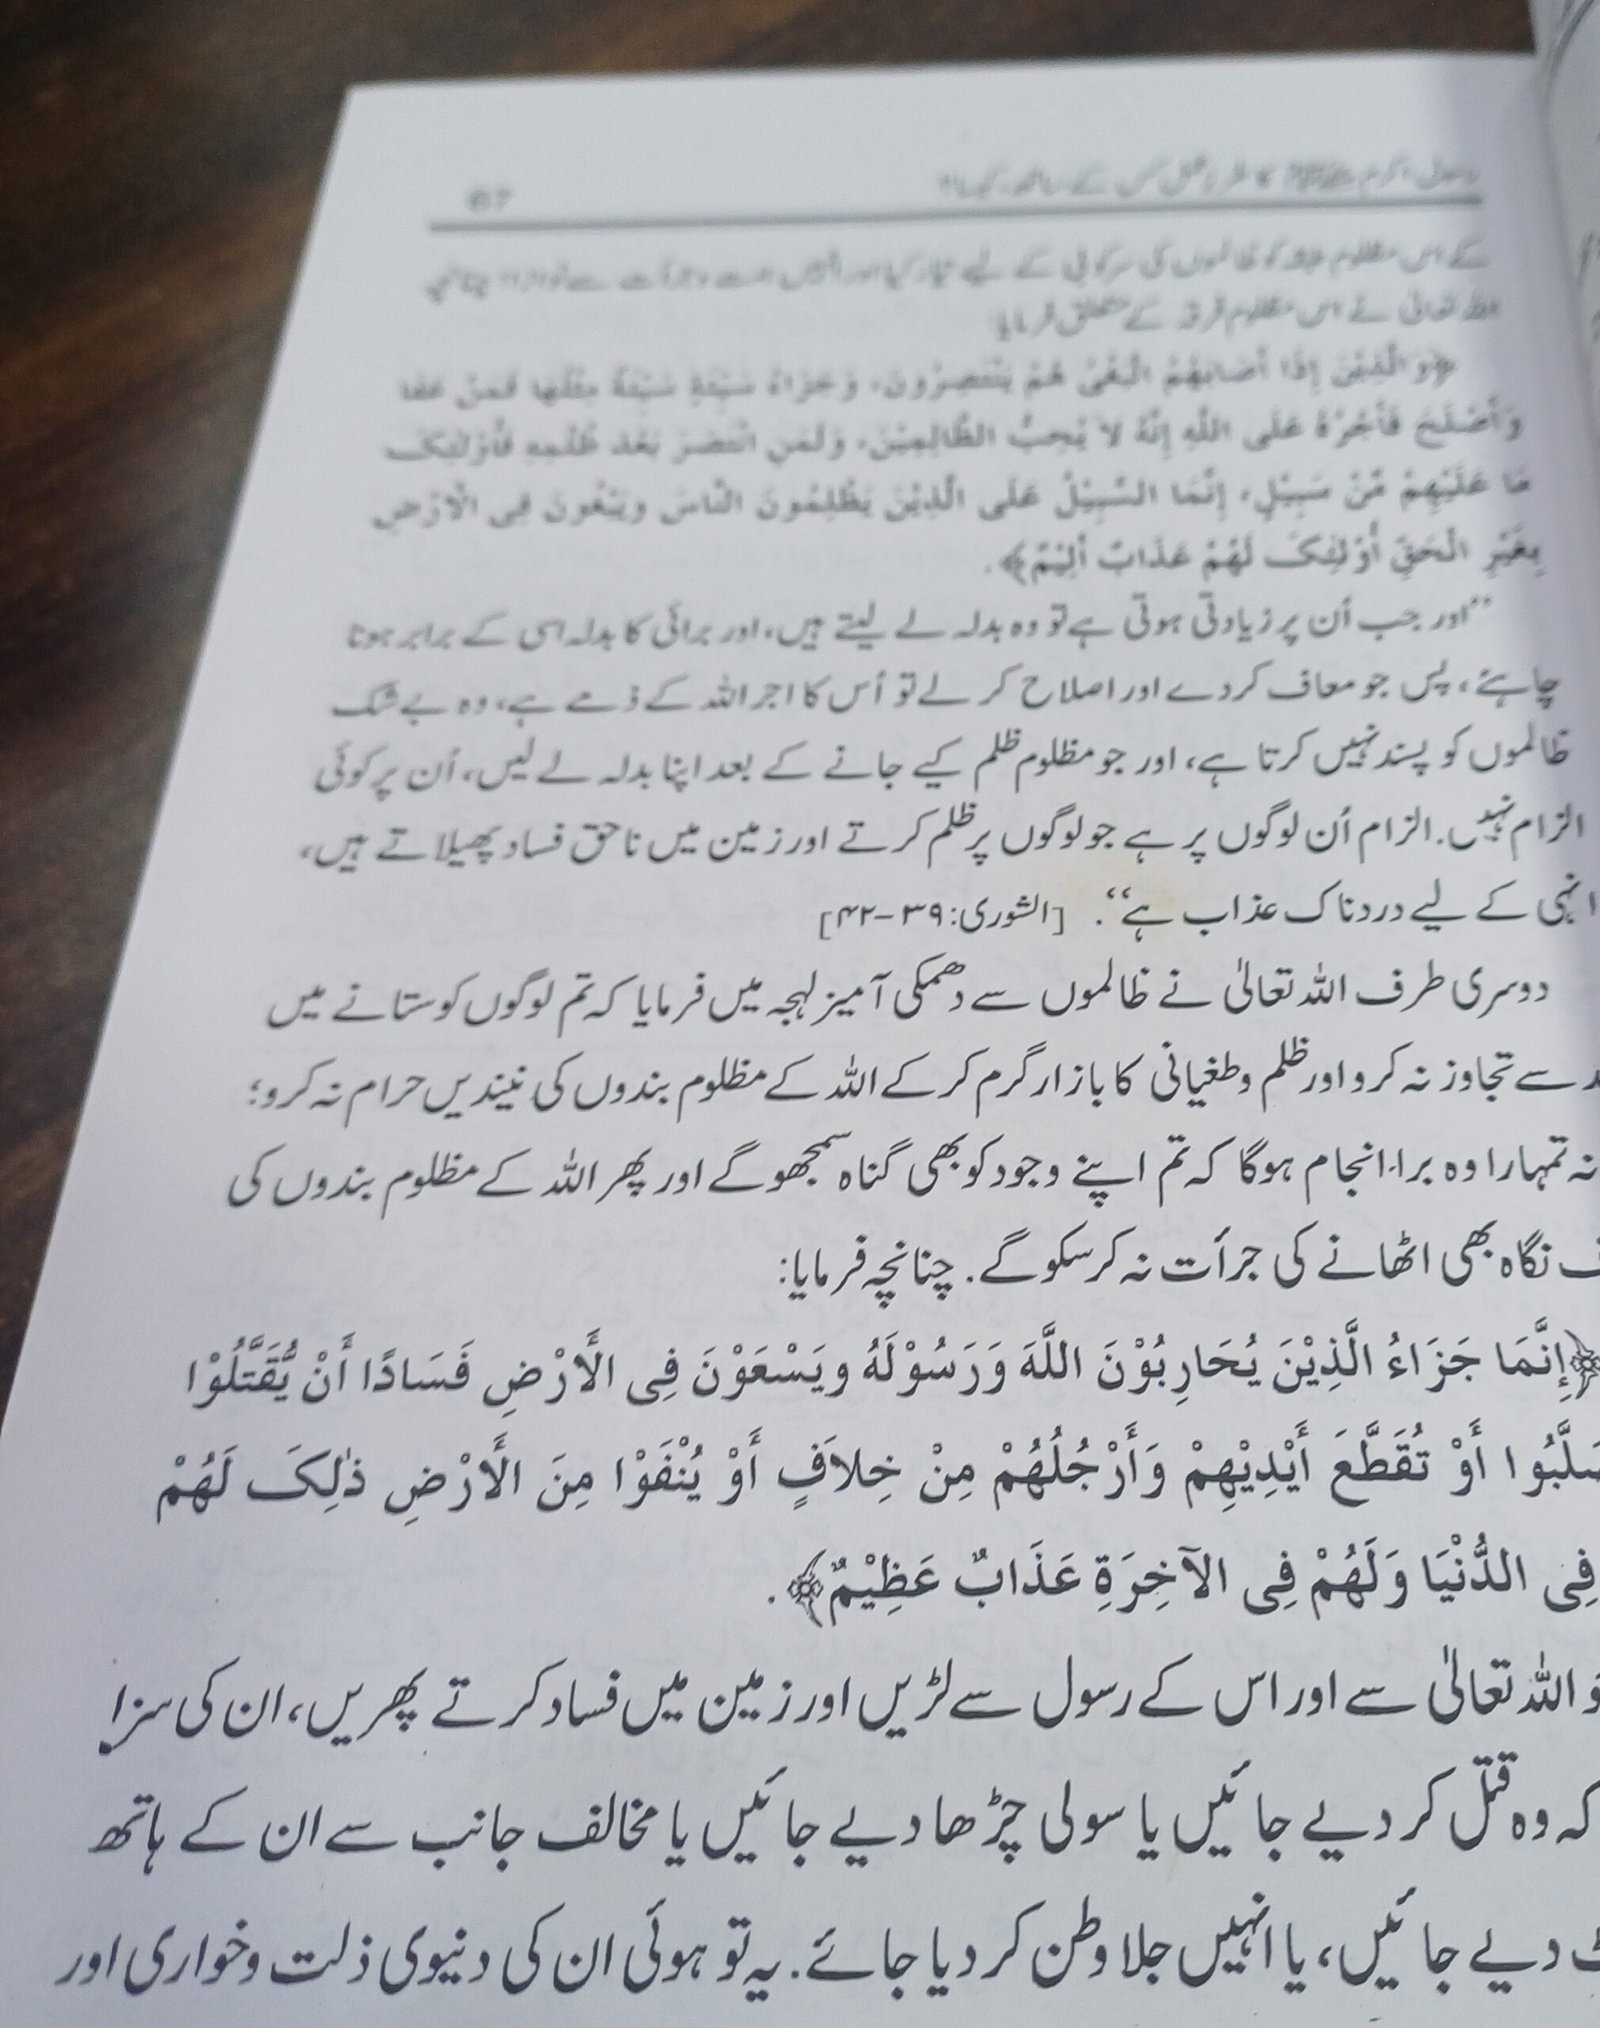 رسول اکرم ﷺ کا طرز عمل کس کے ساتھ کیسا؟
کے اس مظلوم کو ظالموں کی سرکوبی کے لیے تیار کیا اور انہیں ہمت و جرأت سے نوازا؛ چنانچہ
اللہ تعالیٰ نے اس مظلوم فرقہ کے متعلق فرمایا:
﴿وَالَّذِيْنَ إِذَا أَصَابَهُمُ الْبَغْيُ هُمْ يَنْتَصِرُوْنَ، وَجَزَاءُ سَيِّئَةٍ سَيِّئَةٌ مِثْلُهَا فَمَنْ عَفَا
وَأَصْلَحَ فَأَجْرُهُ عَلَى اللّٰهِ إِنَّهُ لَا يُحِبُّ الظَّالِمِيْنَ، وَلَمَنِ انْتَصَرَ بَعْدَ ظُلْمِهِ فَأُوْلٰئِكَ
مَا عَلَيْهِمْ مِّنْ سَبِيْلٍ، إِنَّمَا السَّبِيْلُ عَلَى الَّذِيْنَ يَظْلِمُونَ النَّاسَ وَيَبْغُونَ فِى الْأَرْضِ
بِغَيْرِ الْحَقِّ أُوْلٰئِكَ لَهُمْ عَذَابٌ أَلِيْمٌ﴾.
”اور جب اُن پر زیادتی ہوتی ہے تو وہ بدلہ لے لیتے ہیں، اور برائی کا بدلہ اسی کے برابر ہونا
چاہئے، پس جو معاف کر دے اور اصلاح کر لے تو اُس کا اجر اللہ کے ذمے ہے، وہ بے شک
ظالموں کو پسند نہیں کرتا ہے، اور جو مظلوم ظلم کیے جانے کے بعد اپنا بدلہ لے لیں، اُن پر کوئی
الزام نہیں. الزام اُن لوگوں پر ہے جو لوگوں پر ظلم کرتے اور زمین میں ناحق فساد پھیلاتے ہیں،
انہی کے لیے دردناک عذاب ہے“. [الشوری: ۳۹–۴۲]
دوسری طرف اللہ تعالیٰ نے ظالموں سے دھمکی آمیز لہجہ میں فرمایا کہ تم لوگوں کو ستانے میں
سے تجاوز نہ کرو اور ظلم و طغیانی کا بازار گرم کر کے اللہ کے مظلوم بندوں کی نیندیں حرام نہ کرو؛
نہ تمہارا وہ برا انجام ہوگا کہ تم اپنے وجود کو بھی گناہ سمجھو گے اور پھر اللہ کے مظلوم بندوں کی
نگاہ بھی اٹھانے کی جرأت نہ کر سکو گے. چنانچہ فرمایا:
﴿إِنَّمَا جَزَاءُ الَّذِيْنَ يُحَارِبُوْنَ اللّٰهَ وَرَسُوْلَهُ ويَسْعَوْنَ فِى الْأَرْضِ فَسَادًا أَنْ يُّقَتَّلُوْا
صَلَّبُوا أَوْ تُقَطَّعَ أَيْدِيْهِمْ وَأَرْجُلُهُمْ مِنْ خِلاَفٍ أَوْ يُنْفَوْا مِنَ الْأَرْضِ ذٰلِكَ لَهُمْ
فِى الدُّنْيَا وَلَهُمْ فِى الآخِرَةِ عَذَابٌ عَظِيْمٌ﴾.
اللہ تعالیٰ سے اور اس کے رسول سے لڑیں اور زمین میں فساد کرتے پھریں، ان کی سزا
کہ وہ قتل کر دیے جائیں یا سولی چڑھا دیے جائیں یا مخالف جانب سے ان کے ہاتھ
دیے جائیں، یا انہیں جلا وطن کر دیا جائے. یہ تو ہوئی ان کی دنیوی ذلت و خواری اور